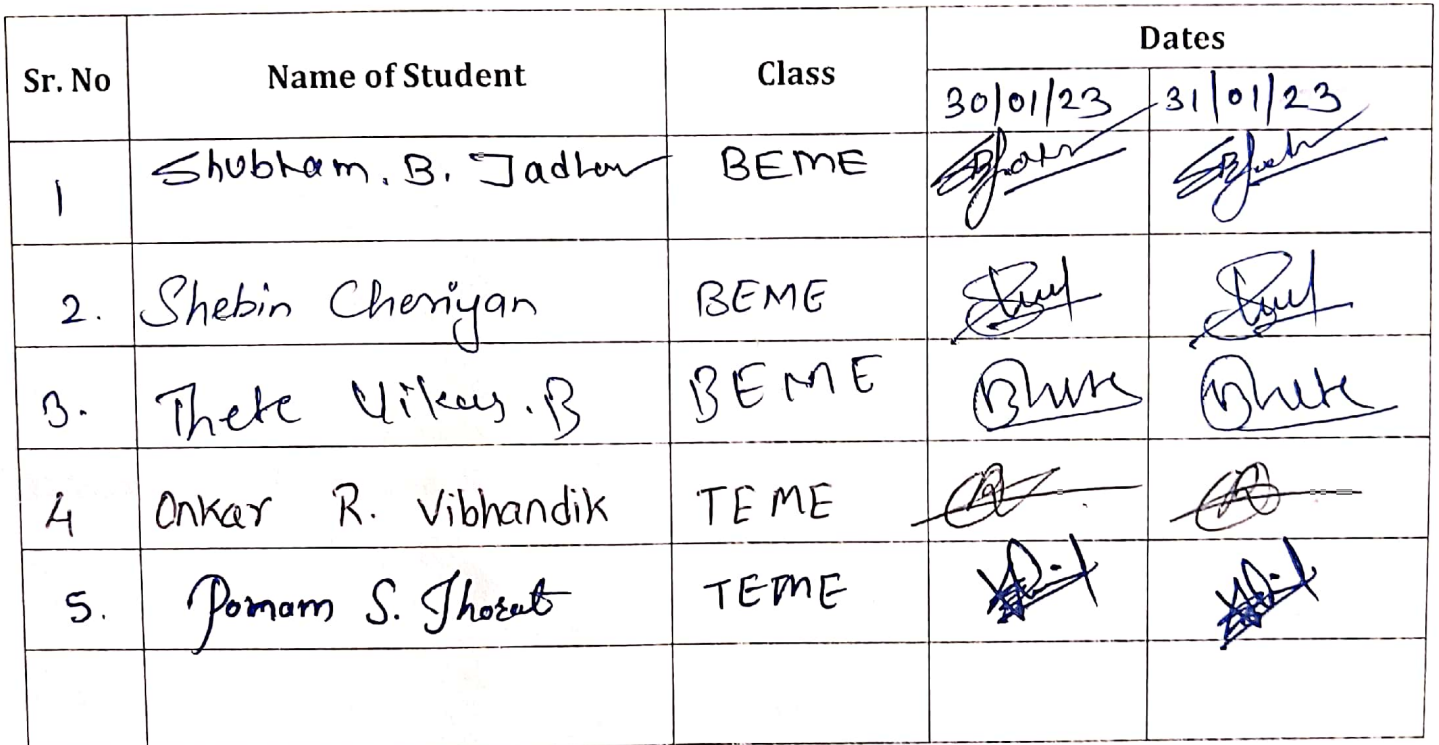 Sr. No Name of Student Class Dates
30/01/23 31/01/23
1 Shubham. B. Jadhav BEME
2. Shebin Cheriyan BEME
3. Thete Vikas. B BEME
4 Onkar R. Vibhandik TEME
5. S. Thorat TEME